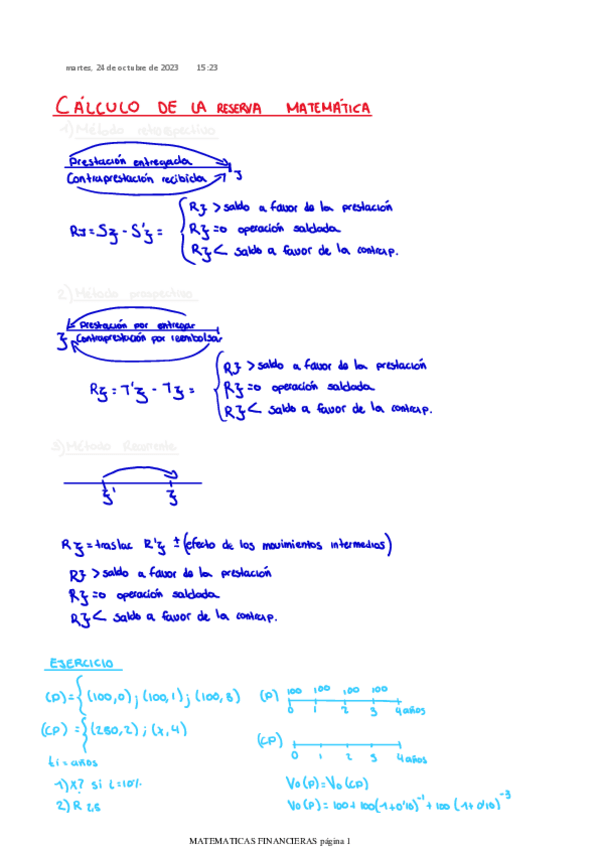 martes, 24 de octubre de 2023 15:23
CÁLCULO DE LA RESERVA MATEMÁTICA
1) Método retrospectivo
Prestación entregada
Contraprestación recibida
Rʒ = Sʒ - S'ʒ =
Rʒ > saldo a favor de la prestación
Rʒ =0 operación saldada
Rʒ < saldo a favor de la contrap.
2) Método prospectivo
Prestación por entregar
Contraprestación por reembolsar
Rʒ = T'ʒ - Tʒ =
Rʒ > saldo a favor de la prestación
Rʒ =0 operación saldada
Rʒ < saldo a favor de la contrap.
3) Método Recurrente
ʒ' ʒ
Rʒ = traslac R'ʒ ± (efecto de los movimientos intermedios)
Rʒ > saldo a favor de la prestación
Rʒ =0 operación saldada
Rʒ < saldo a favor de la contrap.
EJERCICIO
(P) = {(100,0); (100,1); (100,3)
(P) 100 100 100 100
0 1 2 3 4 años
(CP) = {(250,2); (x,4)
(CP)
0 1 2 3 4 años
ti = años
1) X? si i=10%
2) R 2s
V0(P) = V0(CP)
V0(P) = 100 + 100(1+0'10)⁻¹ + 100(1+0'10)⁻³
MATEMATICAS FINANCIERAS página 1